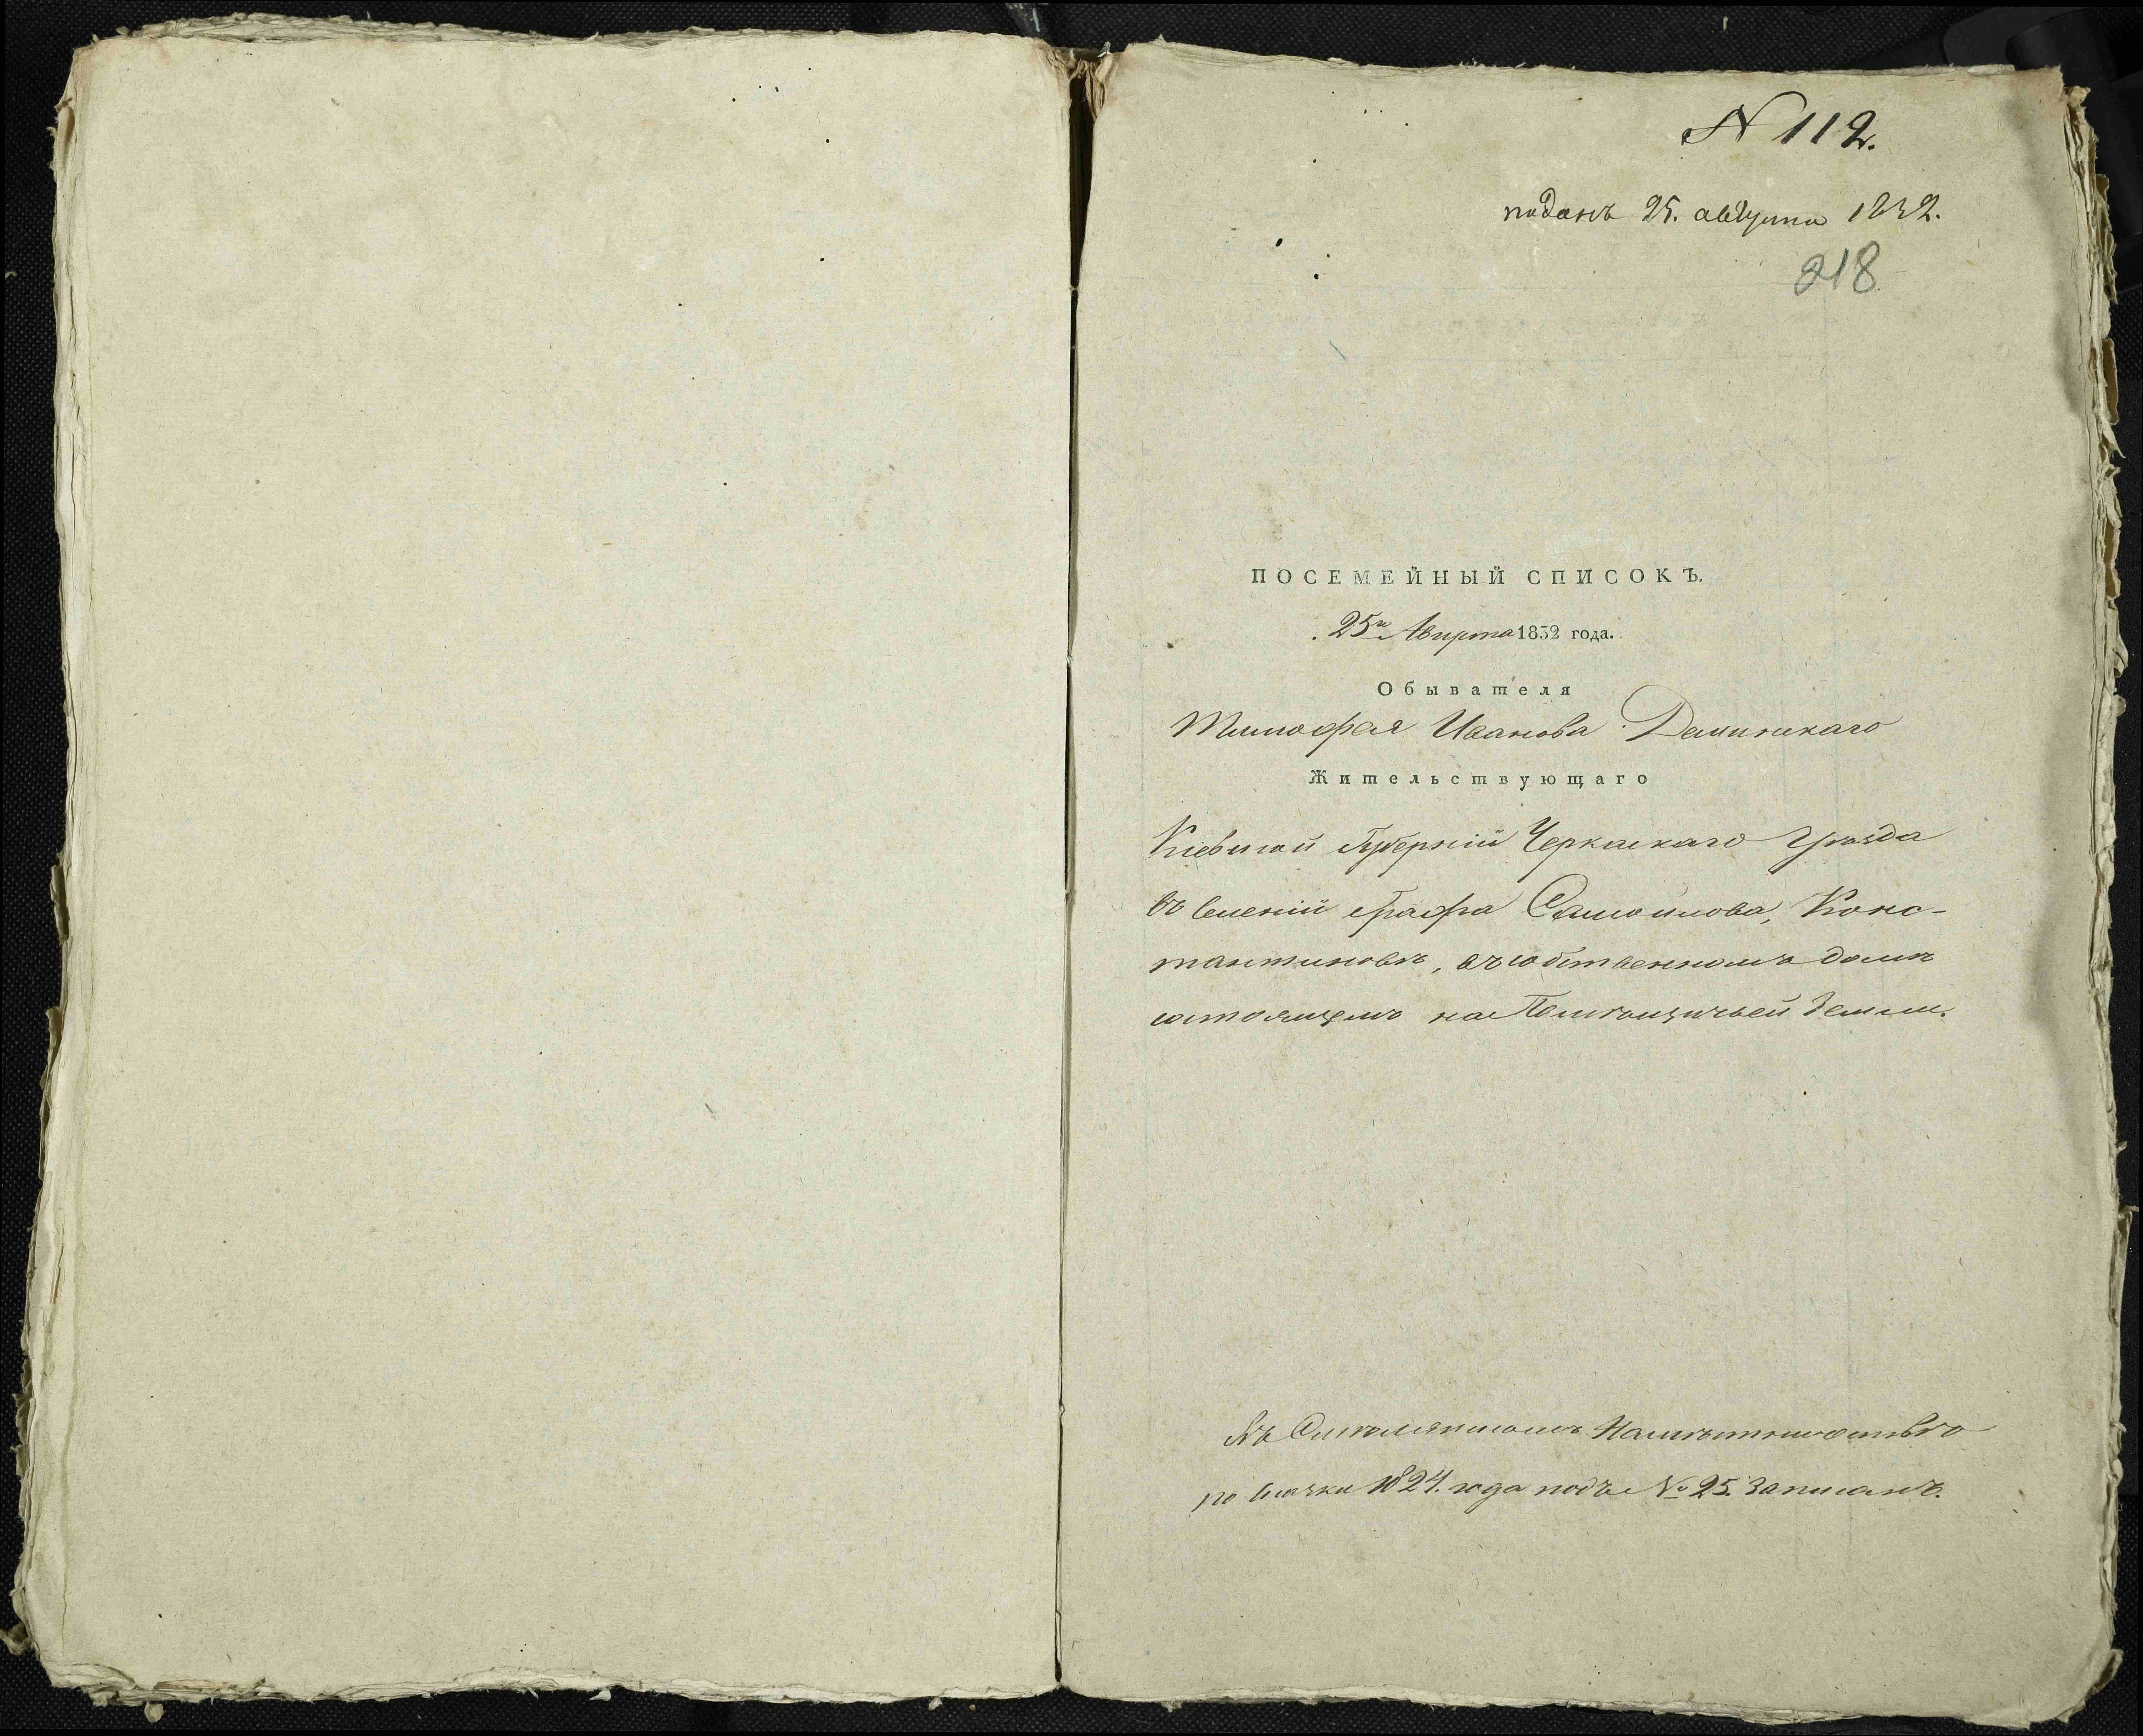 N 112.
поданъ 25. августа 1832.
218
ПОСЕМЕЙНЫЙ СПИСОКЪ.
25го Августа 1832 года.
Обывателя
Тимофея Иванова
Жительствующаго
Кіевской Губерніи Черкаскаго Уѣзда
въ селеніи Графа Самойлова, Конс-
тантиновкѣ, въ собственномъ домѣ
состоящемъ на Помѣщичьей Земли.
Въ
по сказки 1824. года подъ № 25. Записанъ.